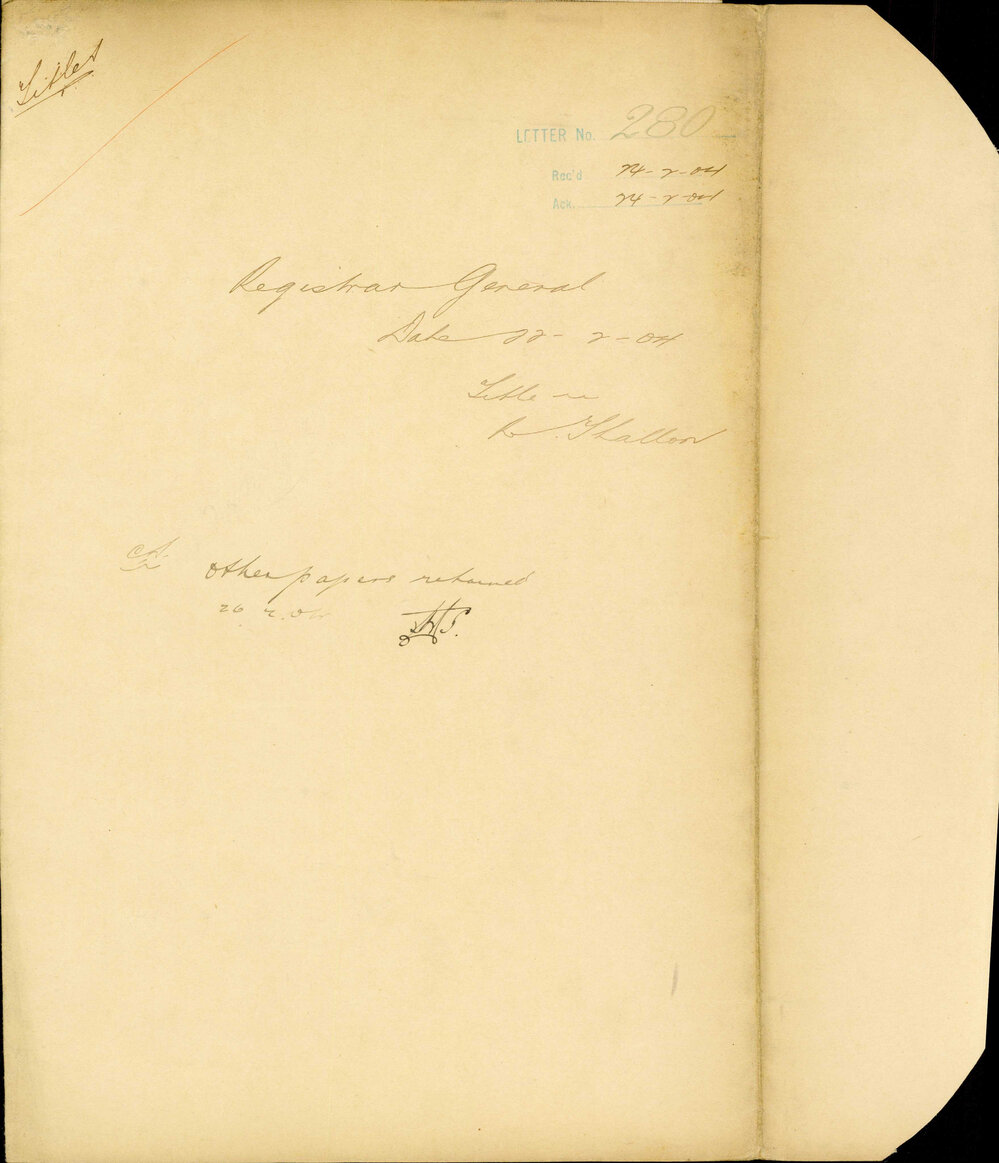 Titles
LETTER No. 280
Rec'd 24-2-04
Ack. 24-2-04
Registrar General
Date 22-2-04
Title re
Thallon
Other papers returned
26.2.04